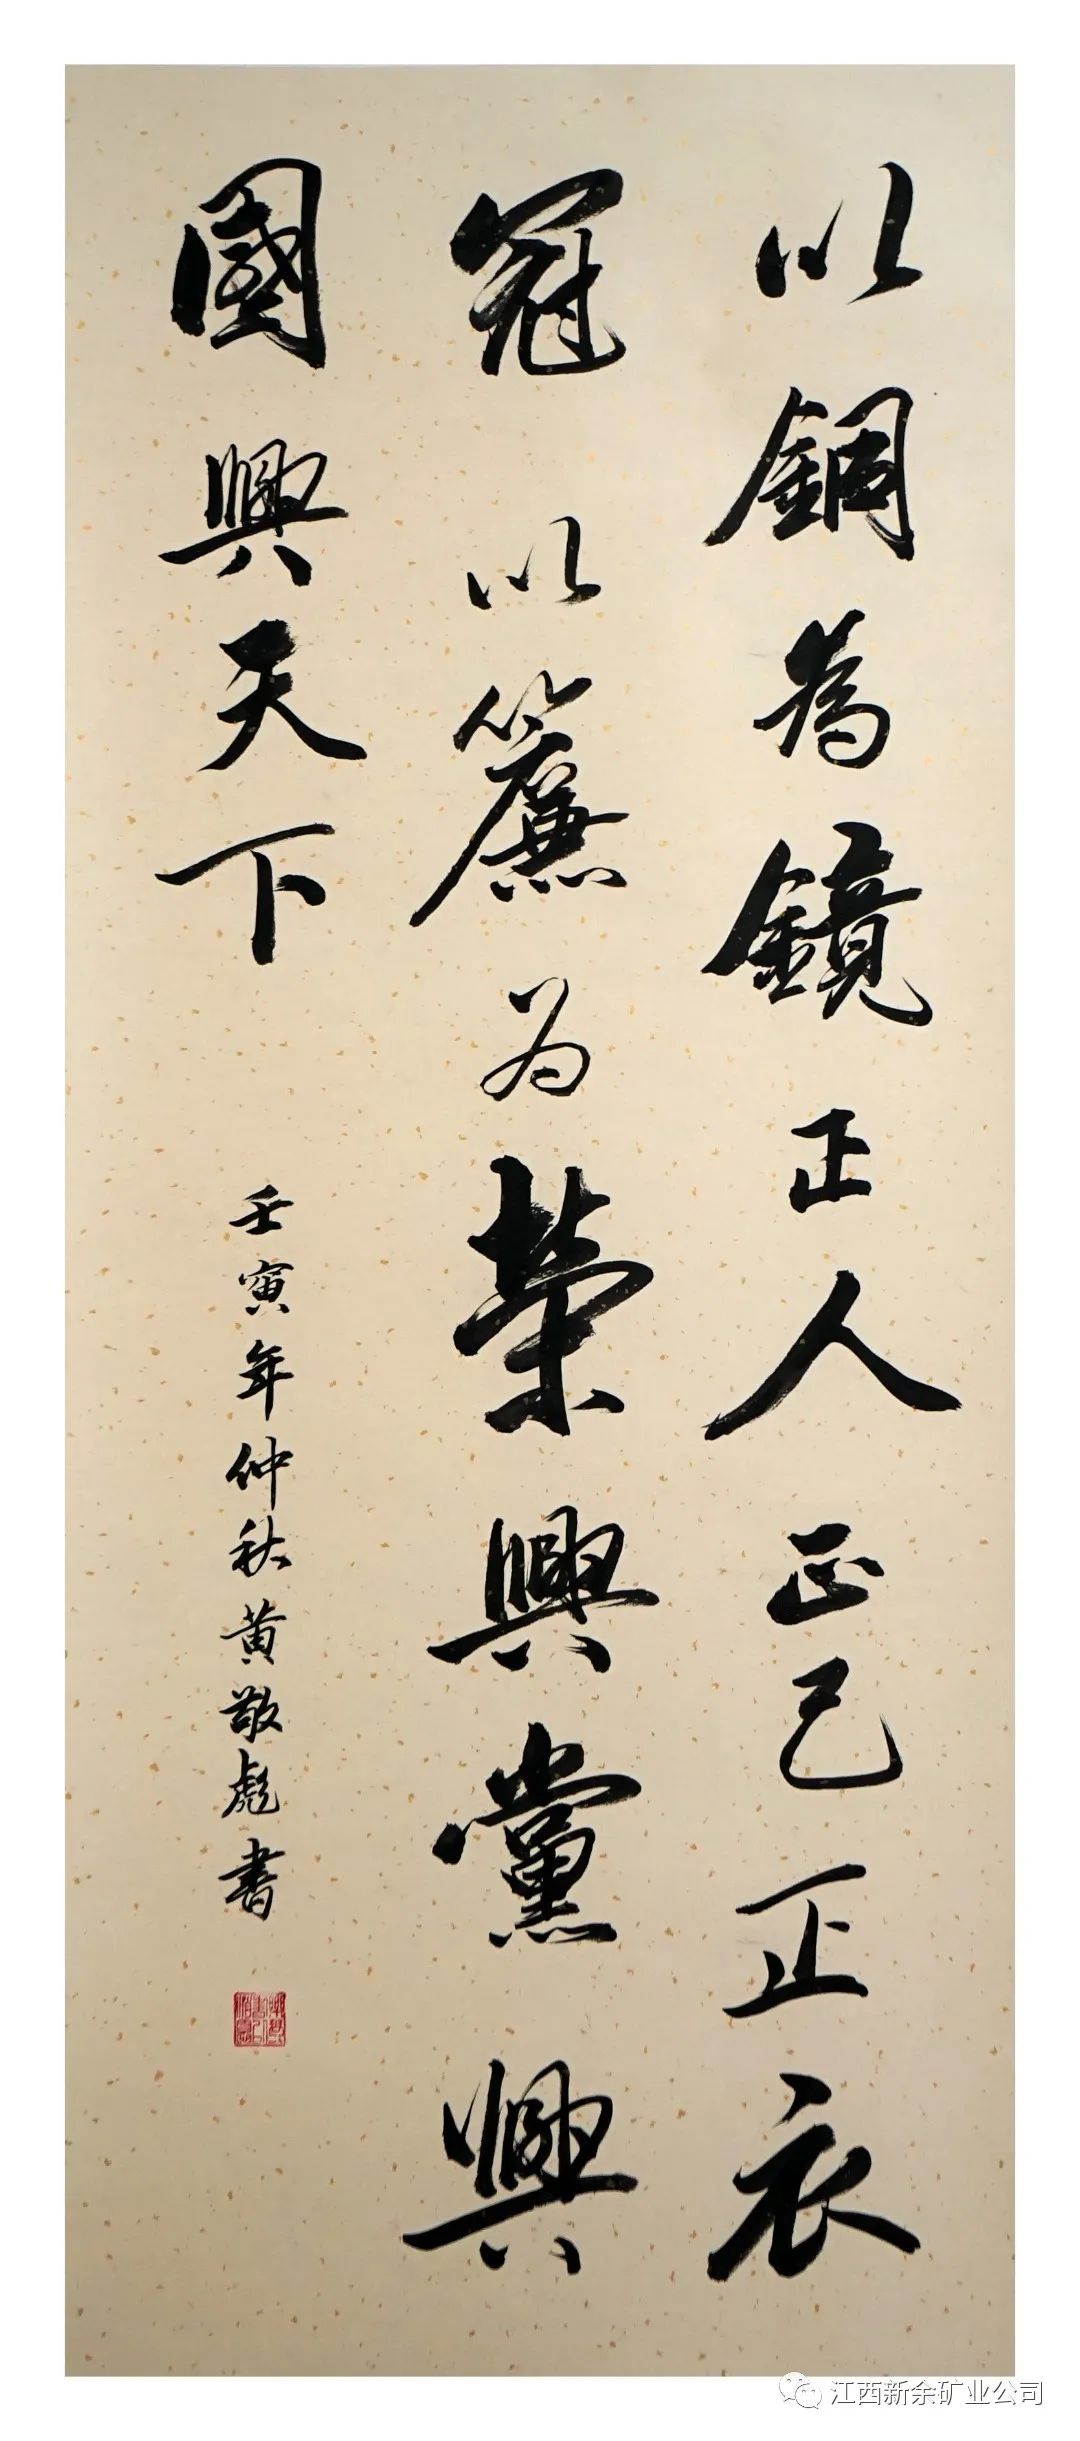 以銅為鏡正人正己正衣
冠以簾为榮興黨興
國興天下
壬寅年仲秋黄敬彪書
江西新余矿业公司